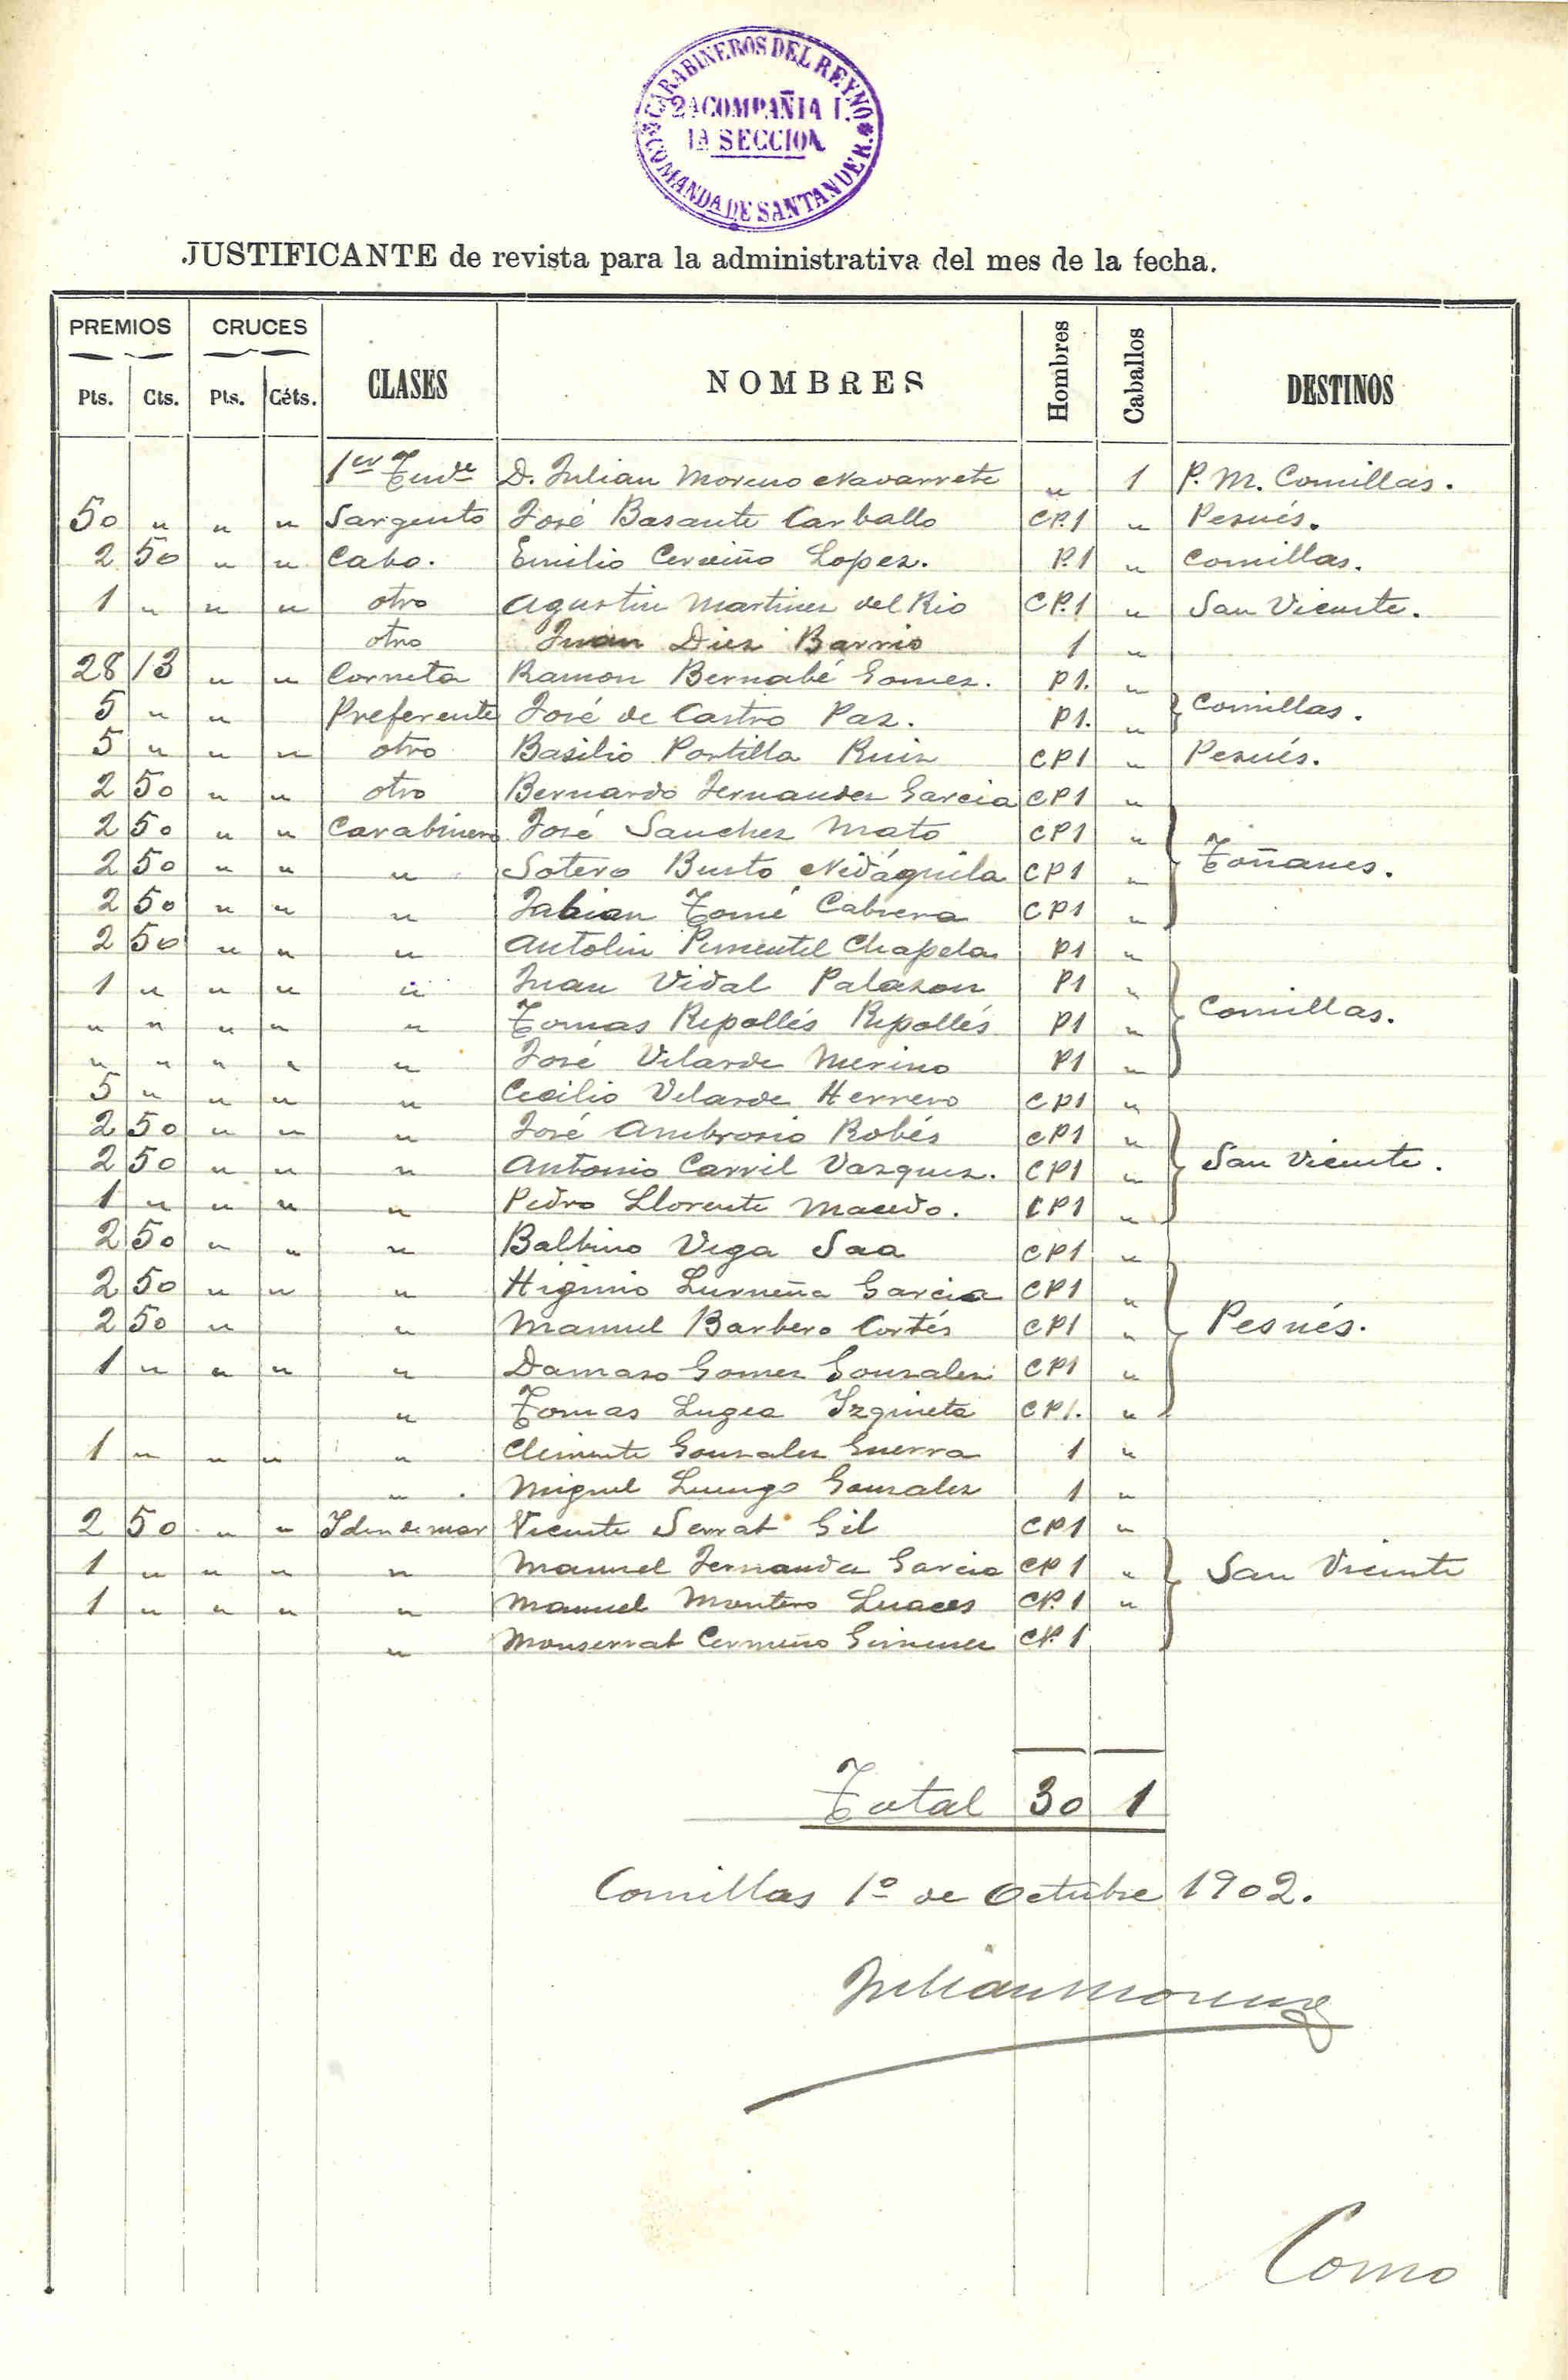 CARABINEROS DEL REYNO
2A COMPAÑIA I.
1A SECCION
COMANDA DE SANTANDER.
JUSTIFICANTE de revista para la administrativa del mes de la fecha.
PREMIOS CRUCES CLASES NOMBRES Hombres Caballos DESTINOS
Pts. Cts. Pts. Céts.
1er Tente D. Julian Moreno Navarrete " 1 P. M. Comillas.
50 " " " Sargento José Basante Carballo CP.1 " Pesués.
2 50 " " Cabo. Emilio Cerviño Lopez. P.1 " Comillas.
1 " " " otro Agustin Martinez del Rio CP.1 " San Vicente.
otro Juan Diez Barrio 1 "
28 13 " " Corneta Ramon Bernabé Gomez. P1. "
5 " " Preferente José de Castro Paz. P1. " Comillas.
5 " " " otro Basilio Portilla Ruiz CP1 " Pesués.
2 50 " " otro Bernardo Fernandez Garcia CP1 "
2 50 " " Carabinero José Sanchez Mato CP1 "
2 50 " " " Sotero Busto Nidáguila CP1 " Toñanes.
2 50 " " " Fabian Tomé Cabrera CP1 "
2 50 " " " Antolin Pimentel Chapela P1 "
1 " " " " Juan Vidal Palazon P1 "
" " " " " Tomas Ripollés Ripollés P1 " Comillas.
" " " " " José Velarde Merino P1 "
5 " " " " Cecilio Velarde Herrero CP1 "
2 50 " " " José Ambrosio Robés CP1 "
2 50 " " " Antonio Carril Vazquez. CP1 " San Vicente.
1 " " " " Pedro Llorente Macedo. CP1 "
2 50 " " " Balbino Vega Saa CP1 "
2 50 " " " Higinio Lurueña Garcia CP1 "
2 50 " " Manuel Barbero Cortés CP1 " Pesués.
1 " " " " Damaso Gomez Gonzalez CP1 "
" Tomas Lugea Izquieta CP1. "
1 " " " " Clemente Gonzalez Guerra 1 "
" Miguel Luengo Gonzalez 1 "
2 50 " " Iden de mar Vicente Serrat Gil CP1 "
1 " " " " Manuel Fernandez Garcia CP1 " San Vicente
1 " " " " Manuel Montero Luaces CP.1 "
" Monserrat Cermeño Gimenez CP.1
Total 30 1
Comillas 1º de Octubre 1902.
Julian Moreno
Como